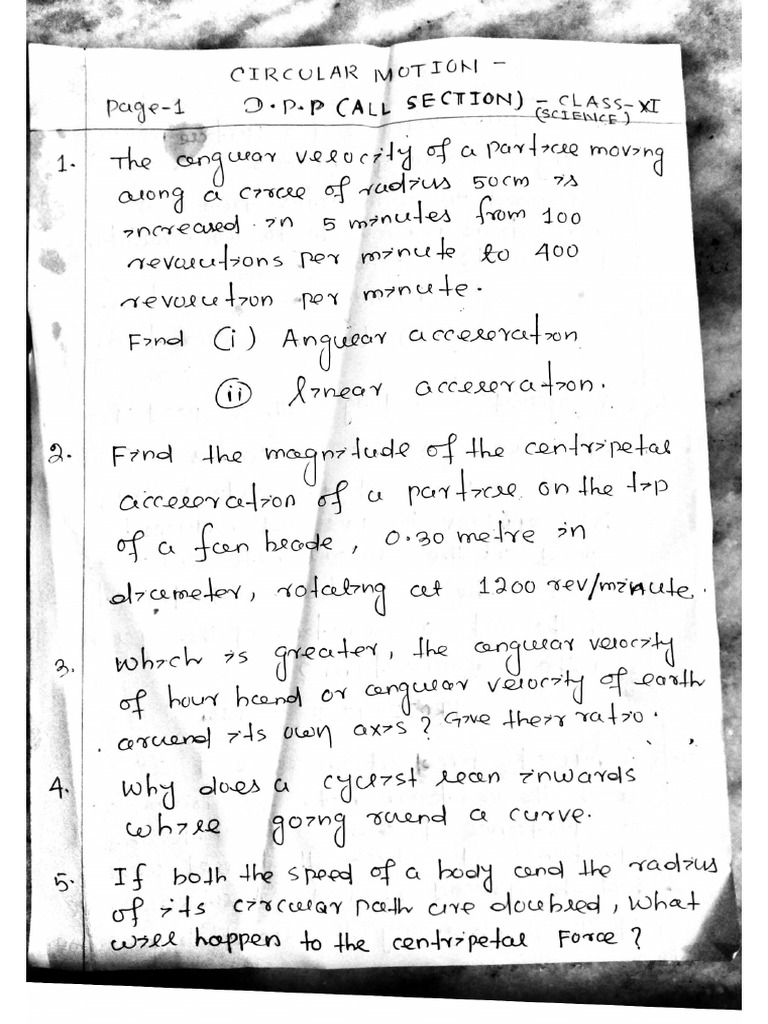 CIRCULAR MOTION -
Page-1 D.P.P (ALL SECTION) - CLASS-XI
(SCIENCE)
1. The angular velocity of a particle moving
along a circle of radius 50cm is
increased in 5 minutes from 100
revolutions per minute to 400
revolution per minute.
Find (i) Angular acceleration
(ii) linear acceleration.
2. Find the magnitude of the centripetal
acceleration of a particle on the tip
of a fan blade, 0.30 metre in
diameter, rotating at 1200 rev/minute.
3. Which is greater, the angular velocity
of hour hand or angular velocity of earth
around its own axis? Give their ratio.
4. Why does a cyclist lean inwards
while going round a curve.
5. If both the speed of a body and the radius
of its circular path are doubled, what
will happen to the centripetal Force?